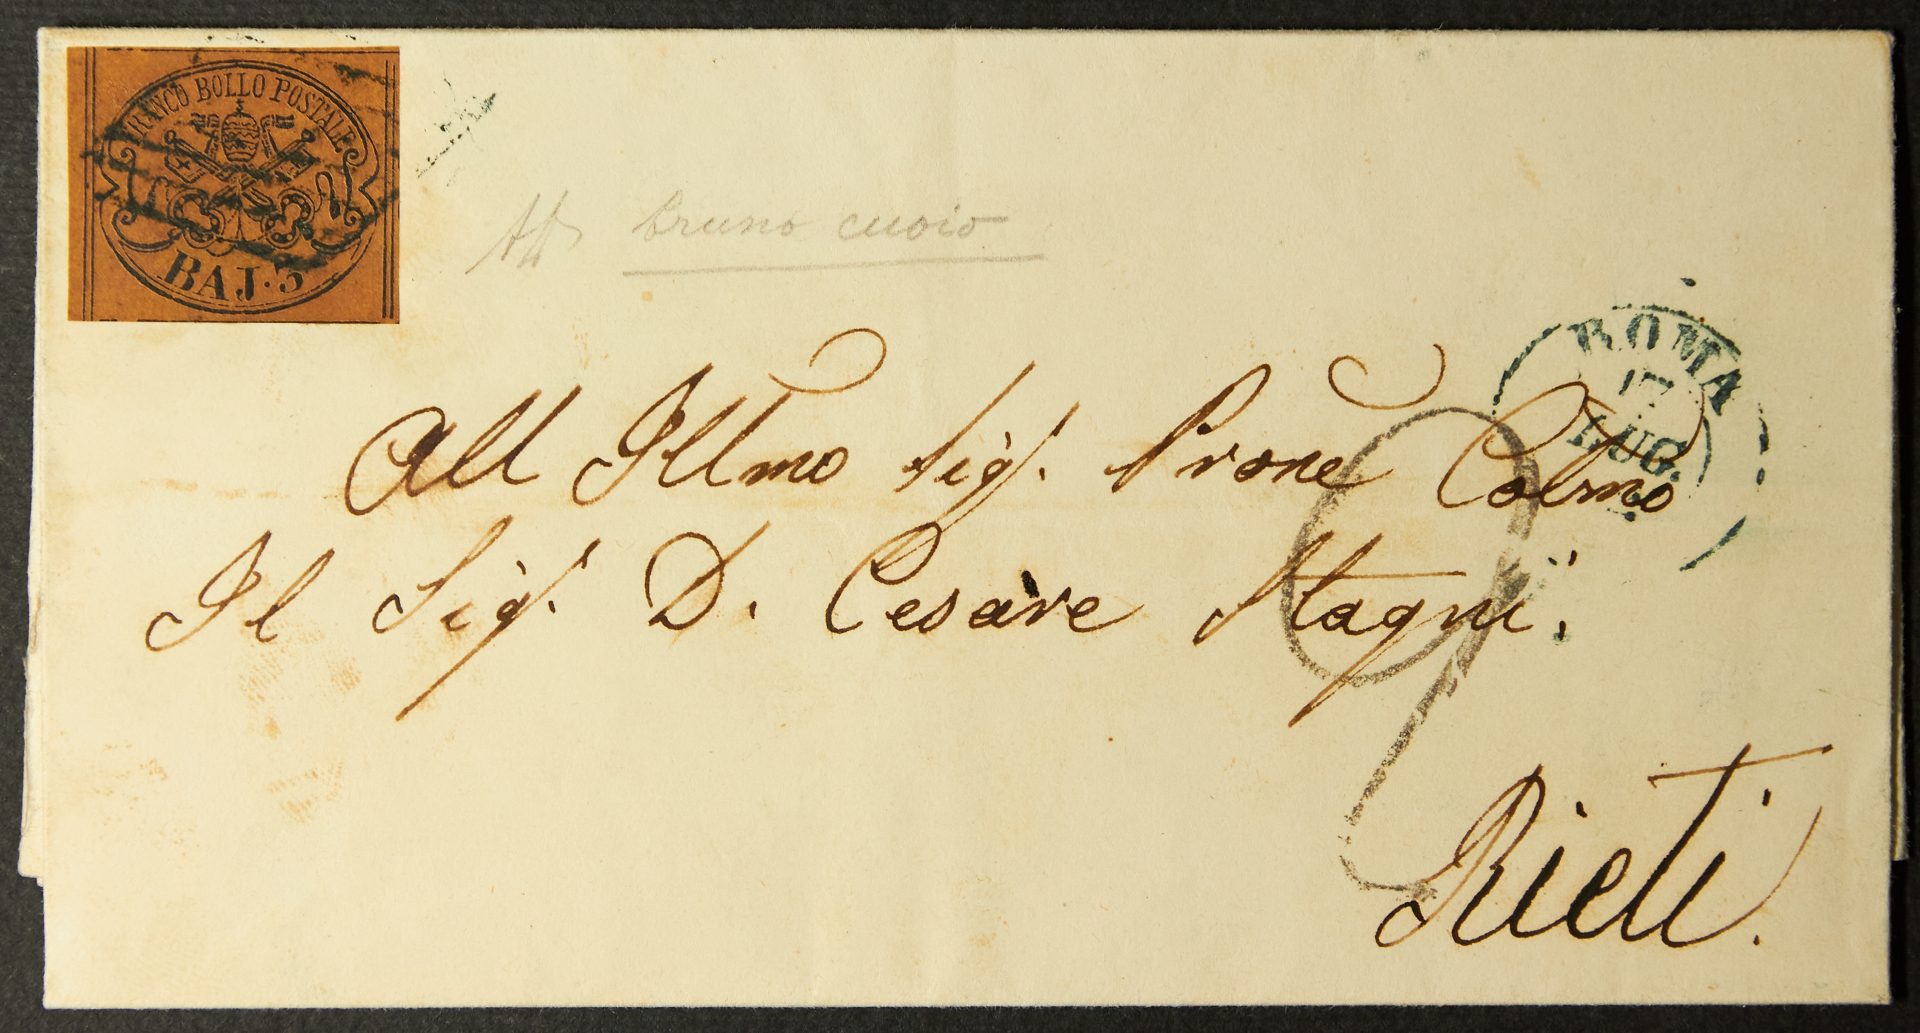 FRANCO BOLLO POSTALE
BAJ. 3
bruno cuoio
ROMA
17
LUG.
All Illmo Sig. Prone Colmo
Il Sig. D. Cesare Stagni.
Rieti.